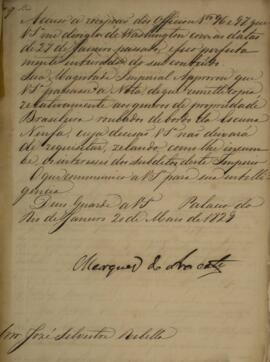 Accuso a recepção dos Officios Nos 46 e 47 que
VS me dirigio de Washington com as datas
de 27 de Janeiro passado, e fico perfeita
mente inteirado do seu contheudo
Sua Magestade Imperial Approvou que
VS passasse a Nota de que remetteo copia
relativamente aos generos de propriedade
Brasileira roubados de bordo da Escuna
Ninfa, cuja decisão VS não deixará
de requisitar, zelando como lhe incum
be, os interesses dos subditos deste Imperio
O que communico a VS para sua intelli
gencia.
Deus Guarde a VS Palacio do
Rio de Janeiro 20 de Maio de 1829
Marquez de Aracaty
Snr José Silvestre Rebello